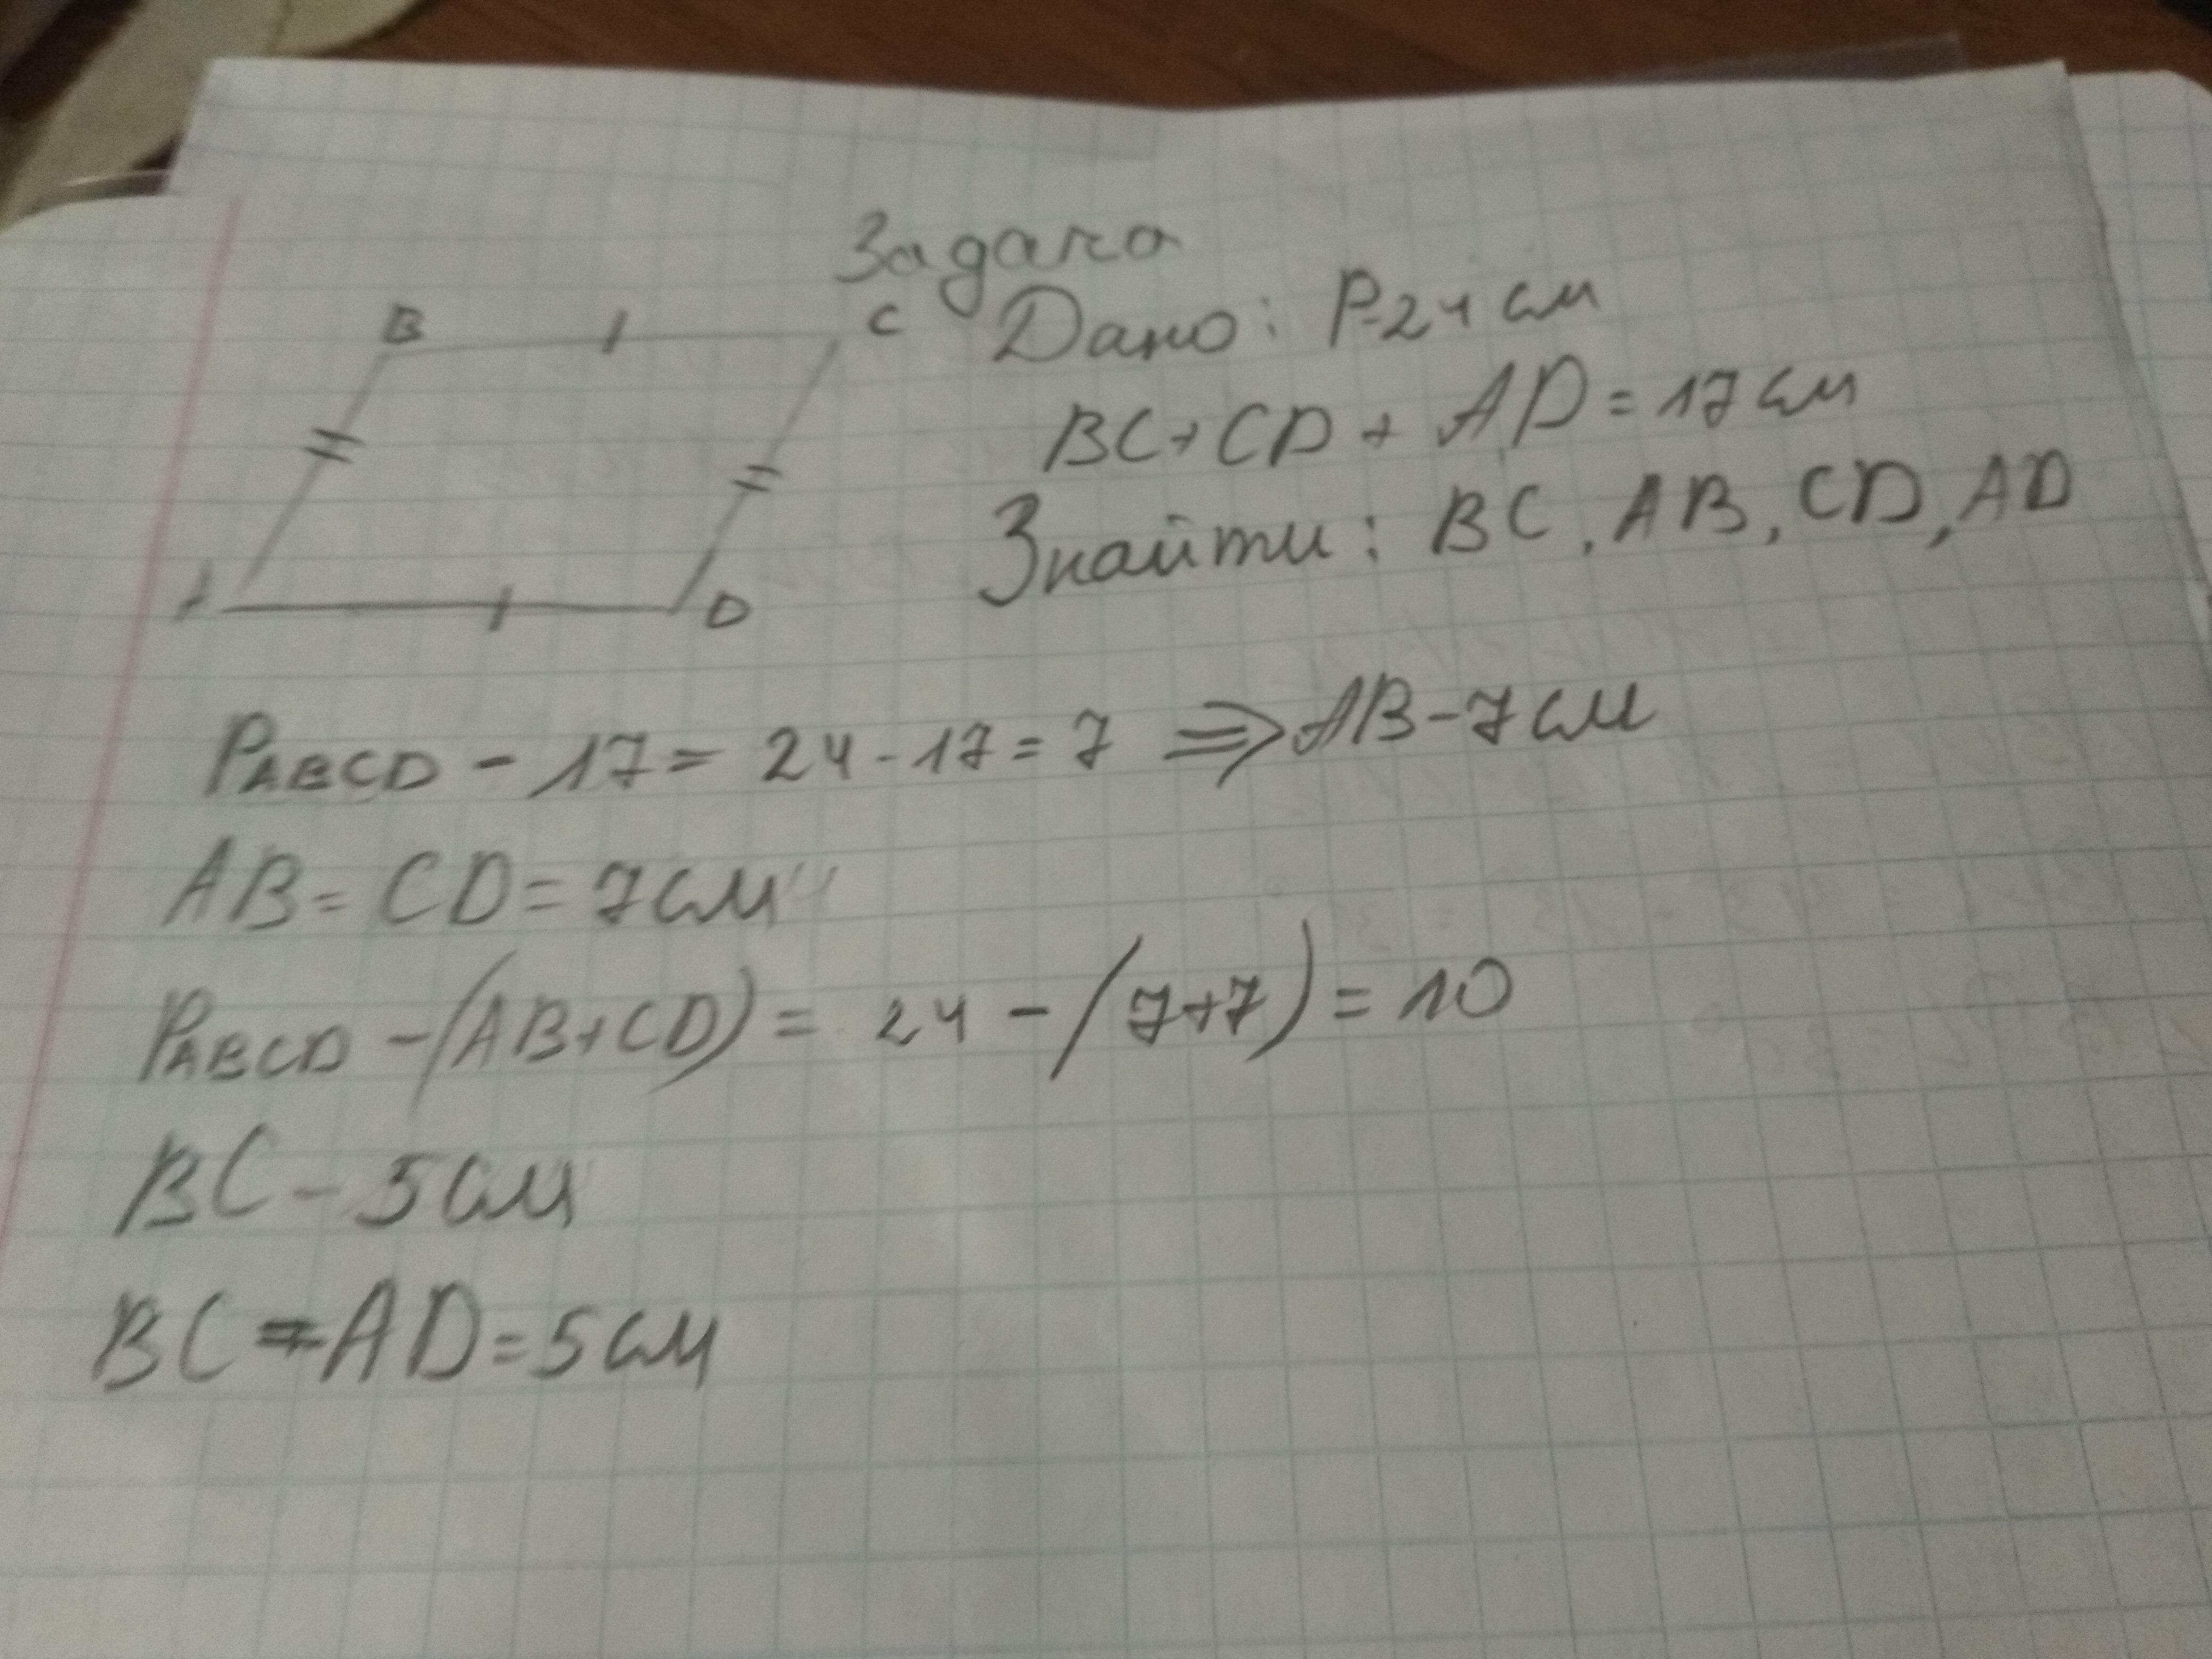 Задача
B C Дано: P-24 см
BC+CD+AD=17см
Знайти: BC, AB, CD, AD
A D
PABCD - 17 = 24 - 17 = 7 ⇒ AB - 7 см
AB = CD = 7см
PABCD - (AB+CD) = 24 - (7+7) = 10
BC - 5 см
BC = AD = 5 см